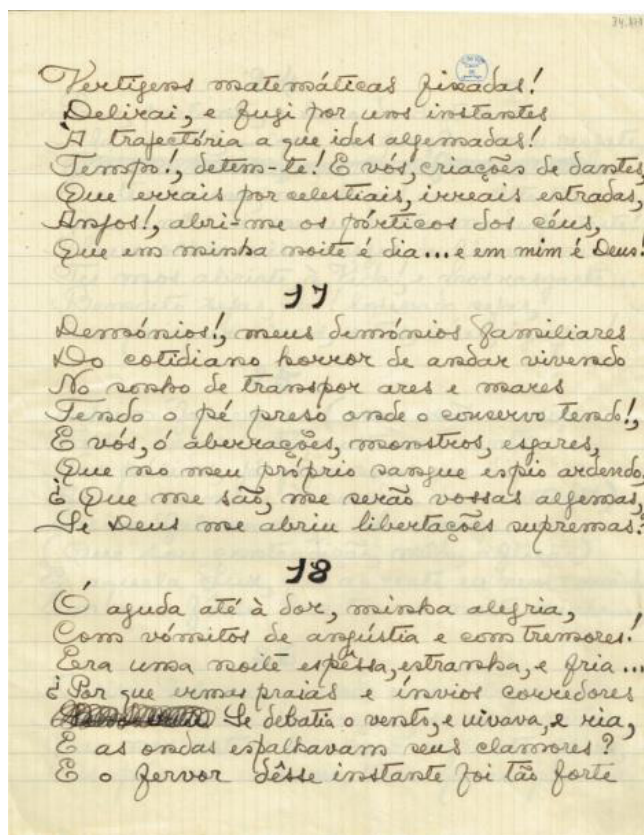 74.173
Vertigens matemáticas fixadas!
Delirai, e fugi por uns instantes
À trajectória a que ides algemadas!
Tempo!, detem-te! E vós, criações de dantes,
Que errais por celestiais, irreais estradas,
Anjos!, abri-me os pórticos dos céus,
Que em minha noite é dia... e em mim é Deus!
17
Demónios!, meus demónios familiares
Do cotidiano horror de andar vivendo
No sonho de transpor ares e mares
Tendo o pé preso onde o conservo tendo!,
E vós, ó aberrações, monstros, esgares,
Que no meu próprio sangue espio ardendo,
¿ Que me são, me serão vossas algemas,
Se Deus me abriu libertações supremas?
18
Ó aguda até à dor, minha alegria,
Com vómitos de angústia e com tremores!
Era uma noite espêssa, estranha, e fria...
¿ Por que ermas praias e ínvios corredores
Se debatia o vento, e uivava, e ria,
E as ondas espalhavam seus clamores?
E o fervor dêsse instante foi tão forte